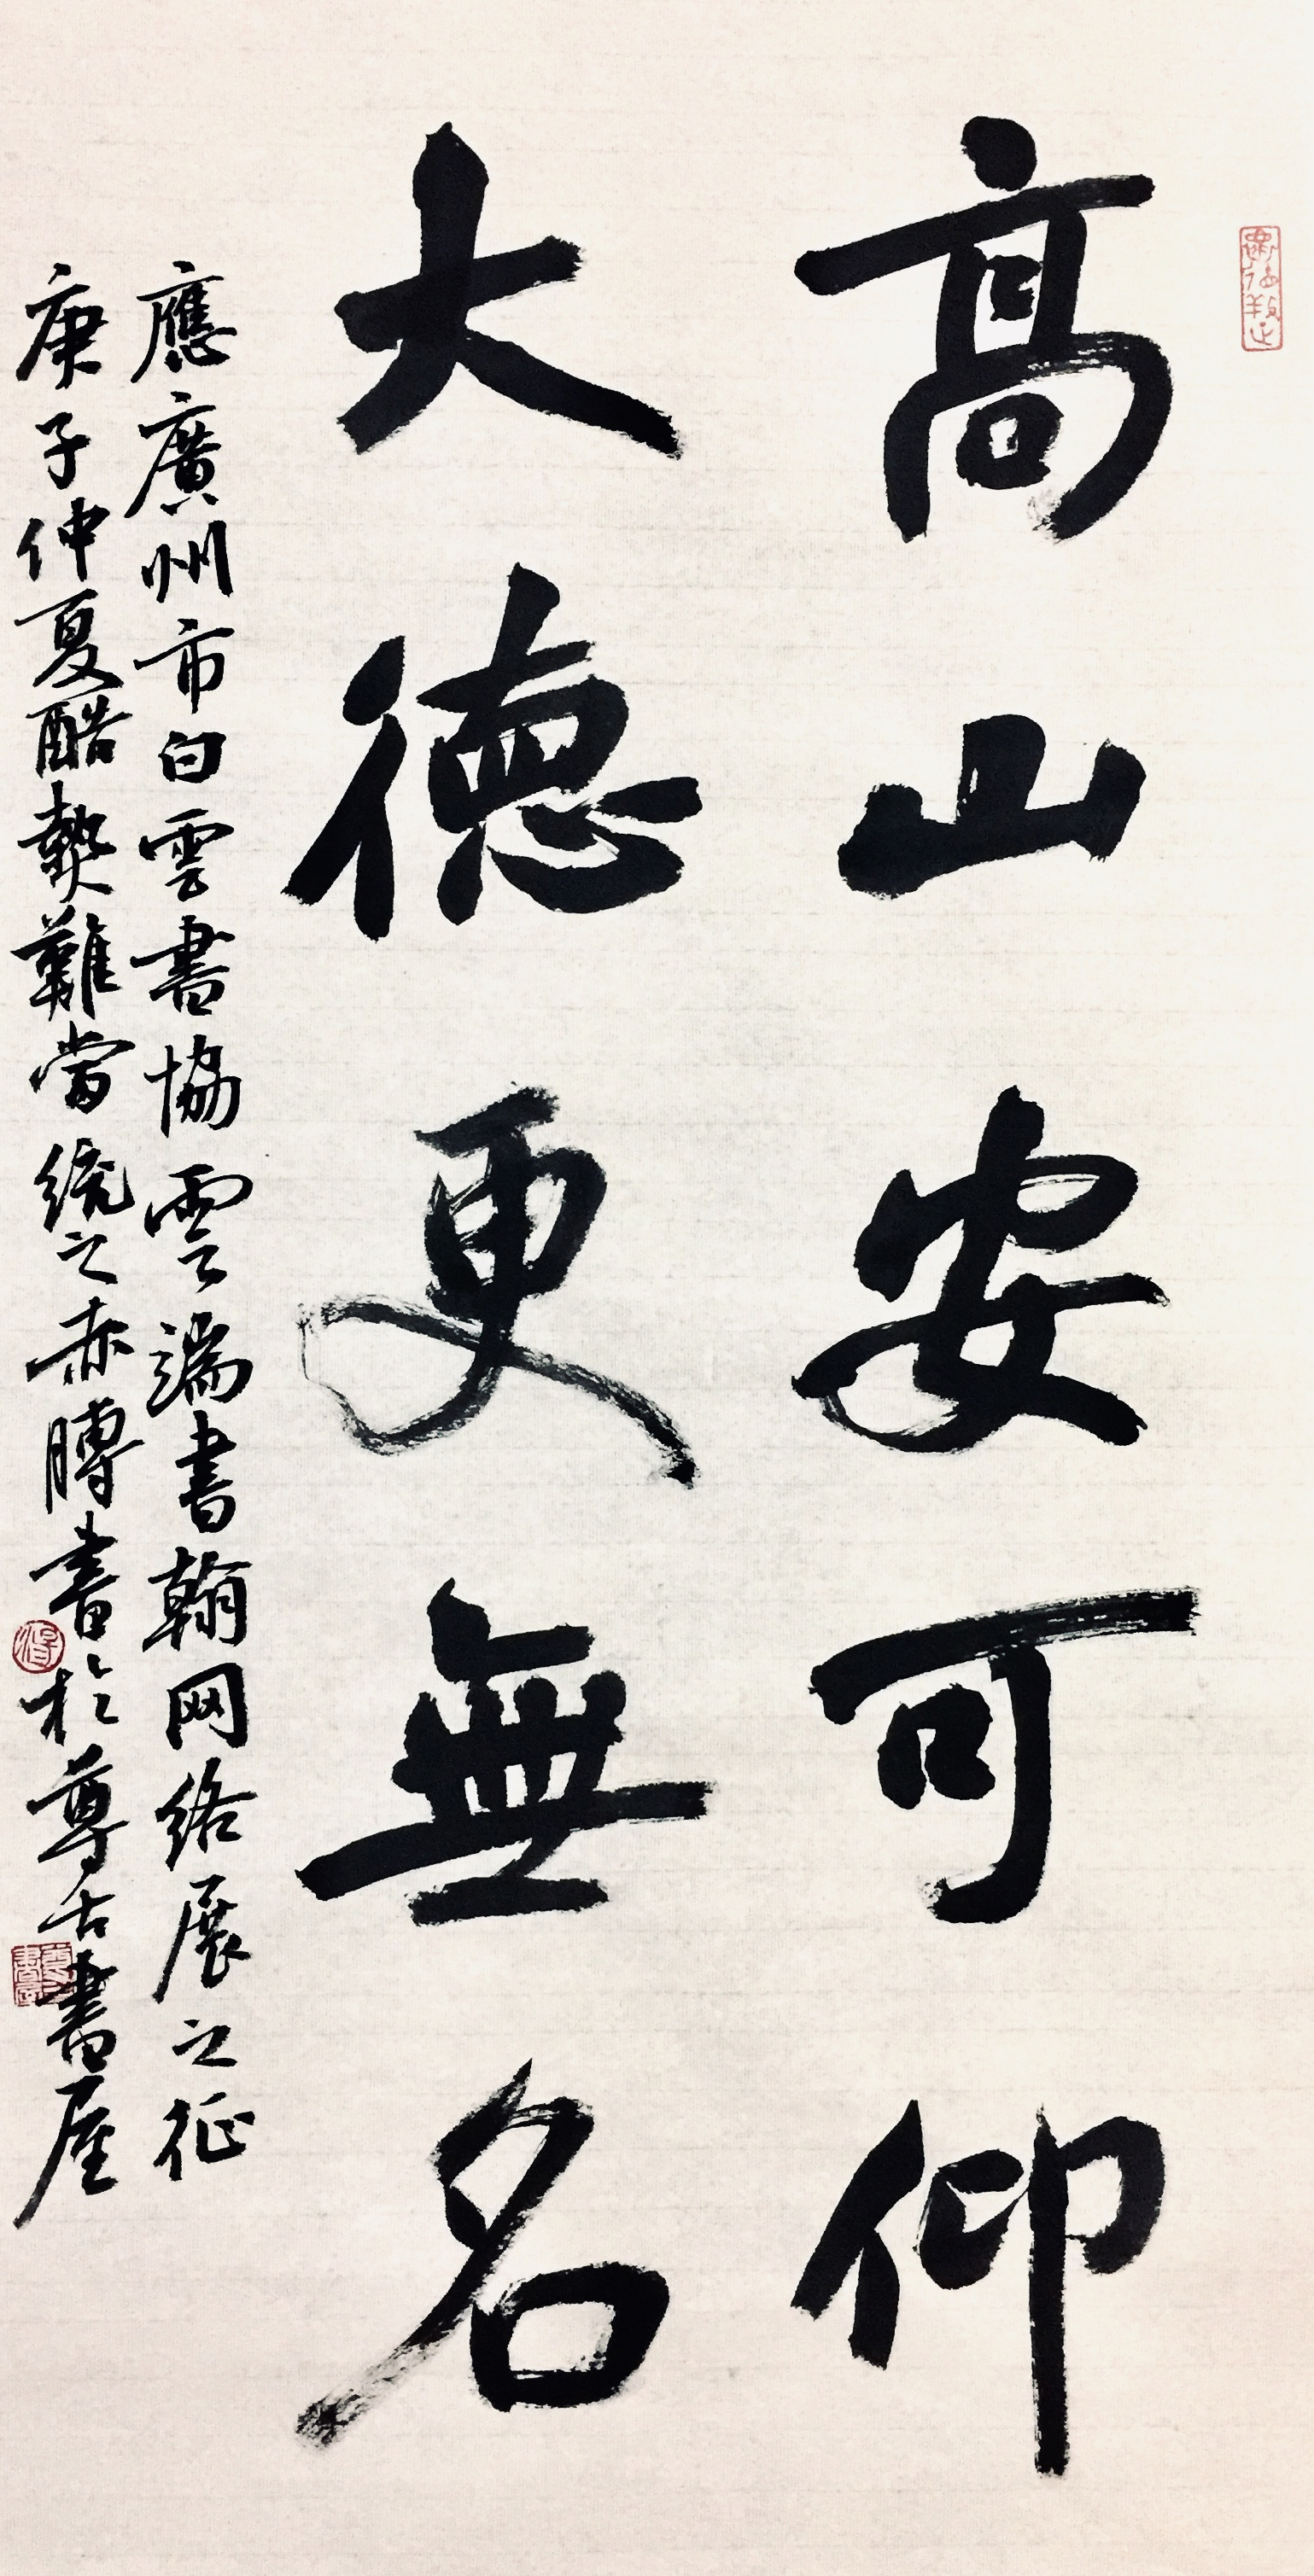 高山安可仰
大德更無名
應廣州市白雲書協雲端書翰网络展之征
庚子仲夏酷熱難當統之赤膊書於尊古書屋